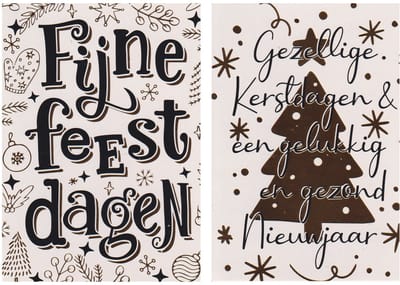 Fijne
feest
dagen
Gezellige
Kerstdagen &
een gelukkig
en gezond
Nieuwjaar